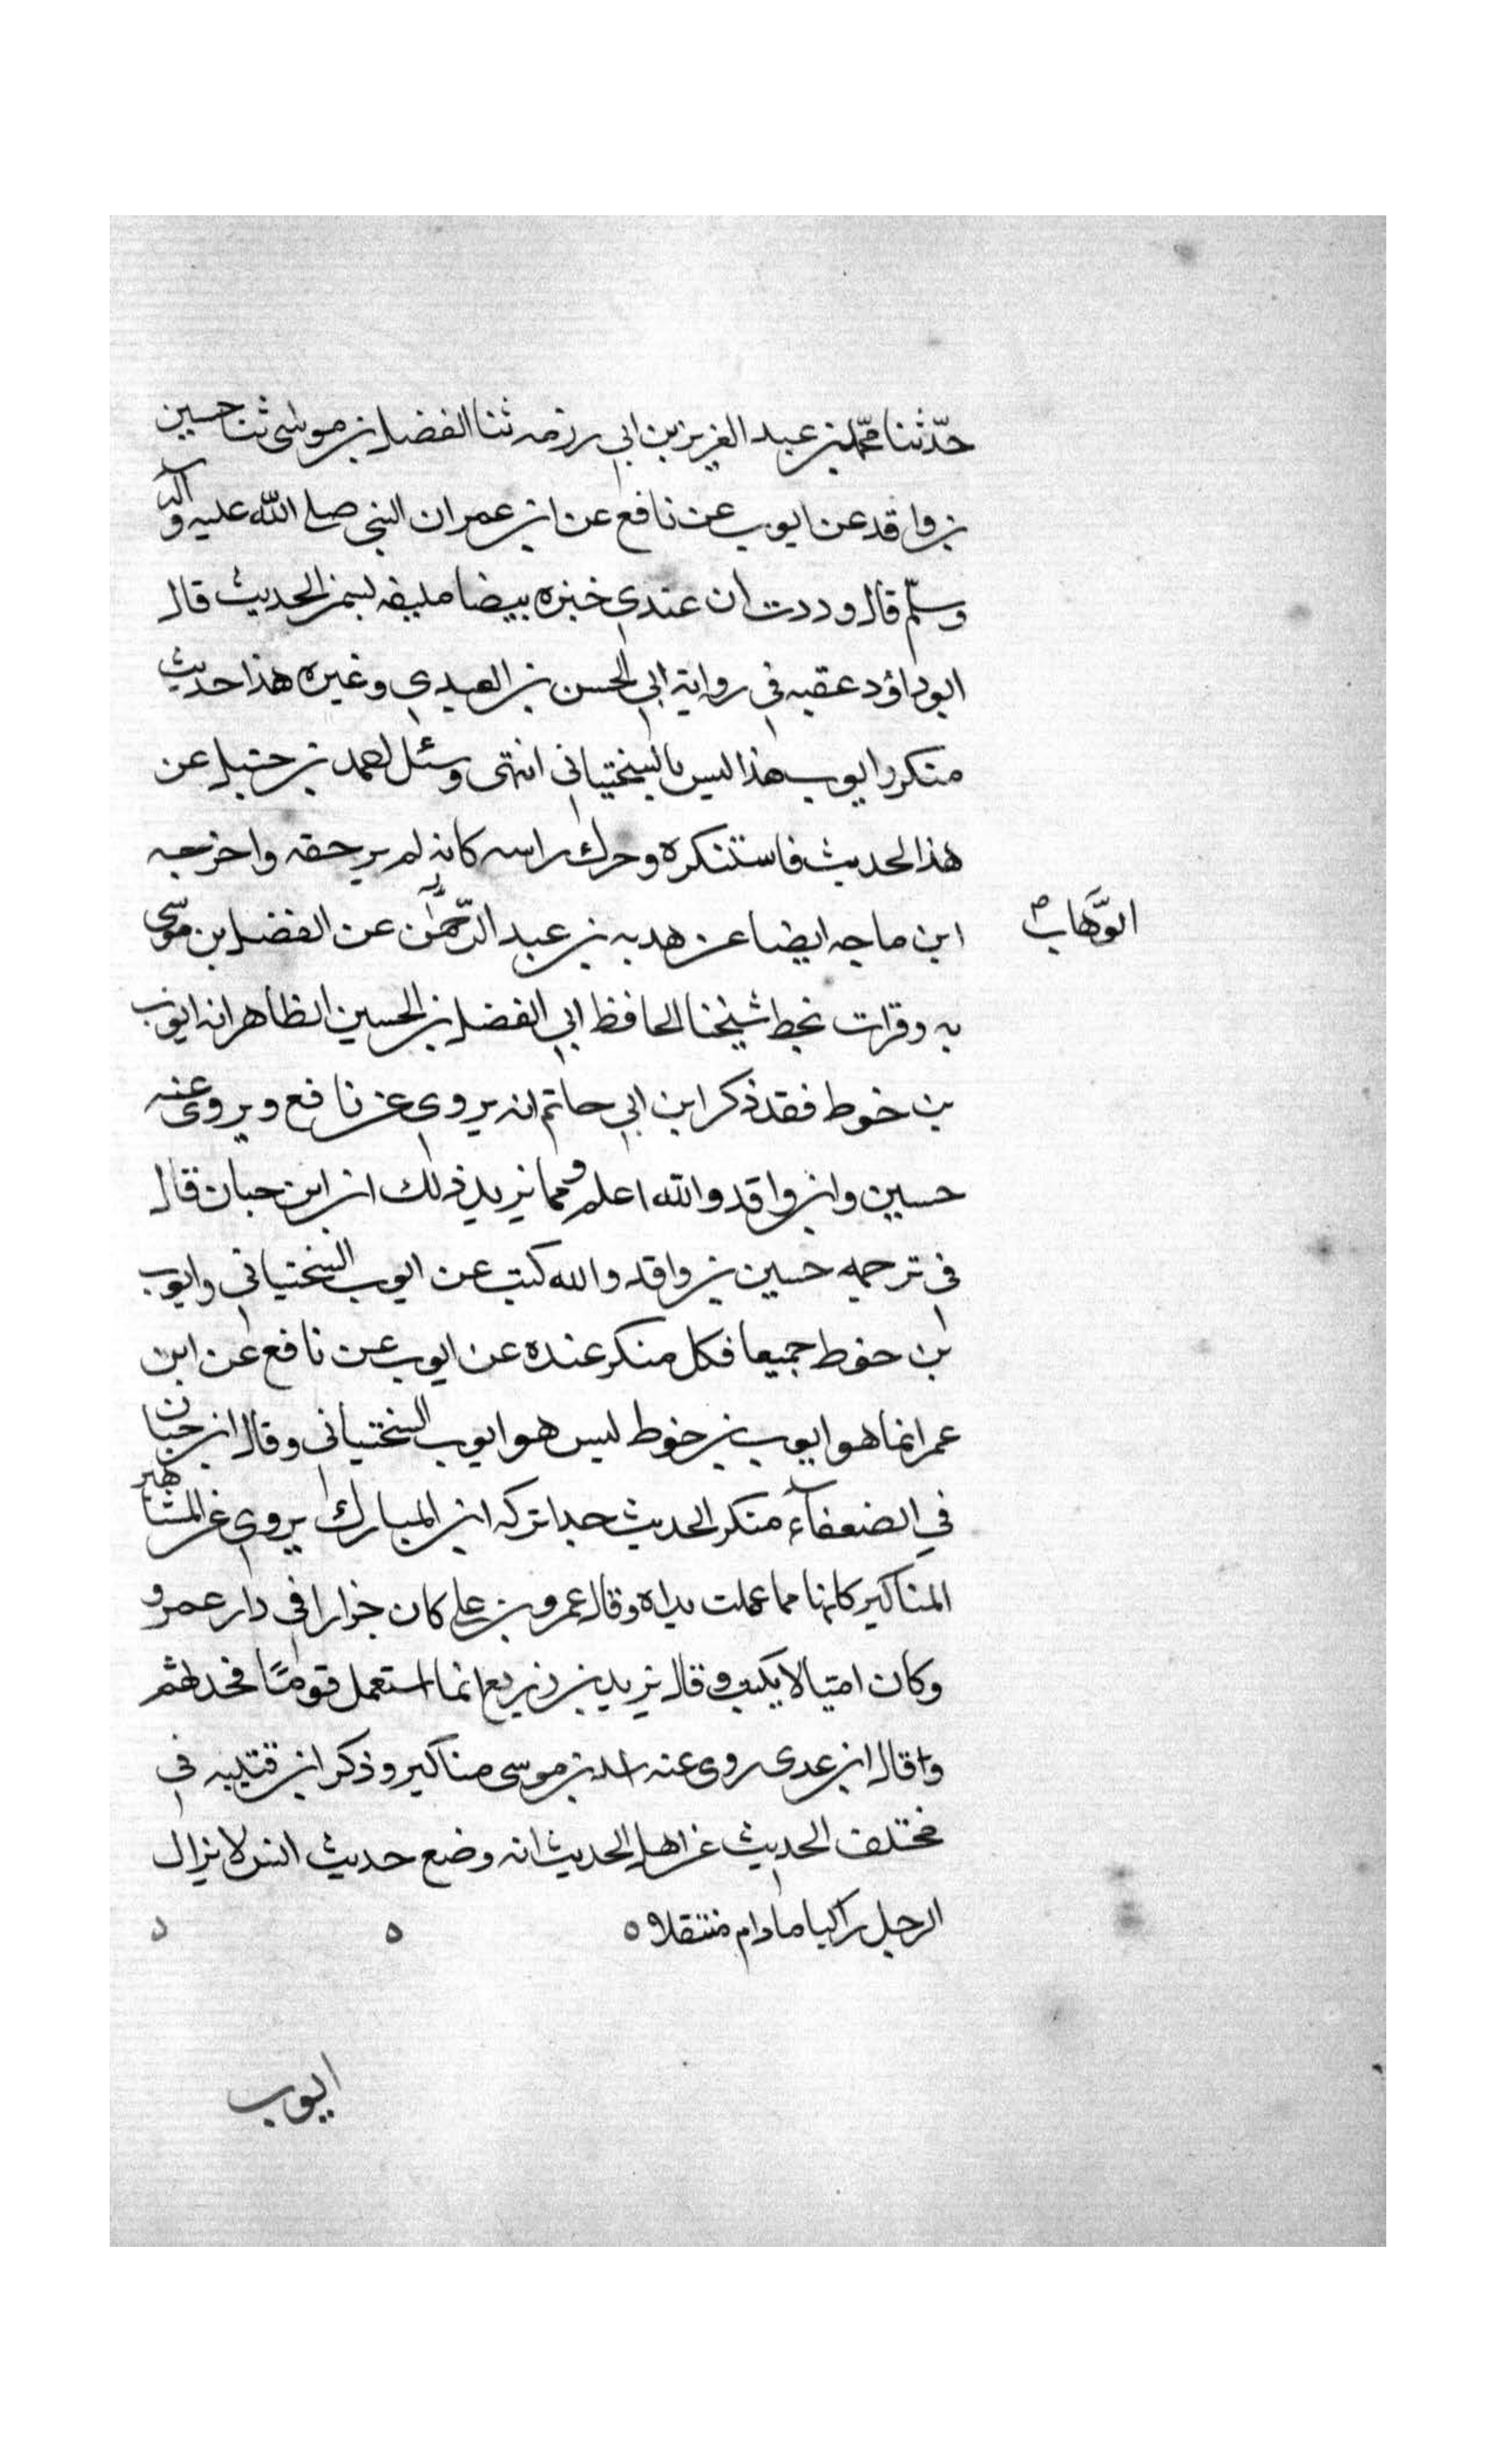 حدّثنا محمّد بن عبد العزيز بن ابي رزمه ثنا الفضل بن موسى ثنا حسين
بن واقد عن ايوب عن نافع عن ابن عمر ان النبي صلى الله عليه وآله
وسلّم قال وددت ان عندي خبزه بيضا مليقه بسمن الحديث قال
ابو داؤد عقبه في رواية ابي الحسن بن العبدي وغيره هذا حديث
منكر وايوب هذا ليس بالسختياني انتهى وسئل احمد بن حنبل عن
هذا الحديث فاستنكره وحرك راسه كانه لم يرحقه واخرجه
ابن ماجه ايضا عن هدبه بن عبد الرّحمٰن عن الفضل بن موسى
الوَّهاب ص
به وقرات بخط شيخنا الحافظ ابي الفضل بن الحسين الظاهر انه ايوب
بن خوط فقد ذكر ابن ابي حاتم انه يروي عن نافع ويروي عنه
حسين وابن واقد والله اعلم ومما يزيد ذلك ان ابن حبان قال
في ترجمه حسين بن واقد والله كتب عن ايوب السختياني وايوب
بن خوط جميعا فكل منكر عنده عن ايوب عن نافع عن ابن
عمر انما هو ايوب بن خوط ليس هو ايوب السختياني وقال ابن حبان
في الضعفآء منكر الحديث جدا تركه ابن المبارك يروي عن المشاهير
المناكير كانها مما عملت يداه وقال عمرو بن علي كان خزارا في دار عمرو
وكان اميّا لا يكتب وقال يزيد بن زريع انما استعمل قومًا
وقال ابن عدى روى عنه بن موسى مناكير وذكر ابن قتيبه في
مختلف الحديث عن اهل الحديث انه وضع حديث انس لا يزال
الرجل راكبا ما دام منتقلا ه ه
ايوب